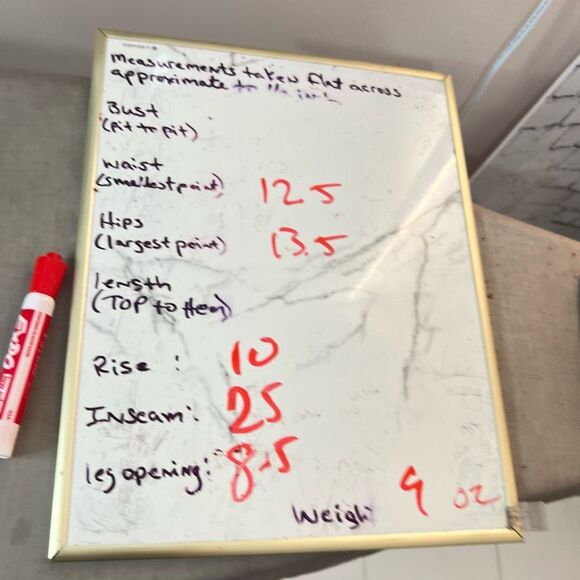 measurements taken flat across
approximate to
Bust
(Pit to pit)
waist
(smallest point) 12.5
Hips
(largest point) 13.5
length
(TOP to Hem)
Rise : 10
Inseam: 25
leg opening: 8.5
Weigh 9 oz
EXPO